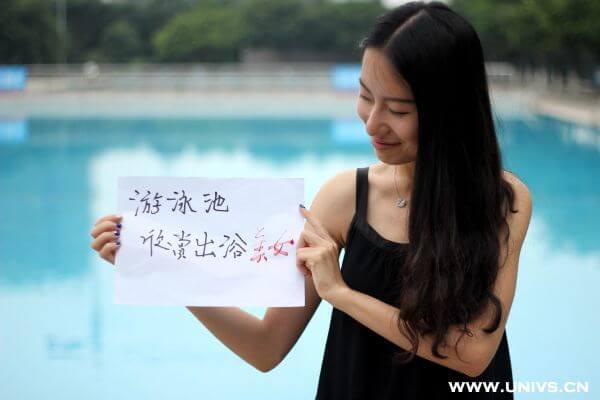 游泳池
欣赏出浴美女
WWW.UNIVS.CN